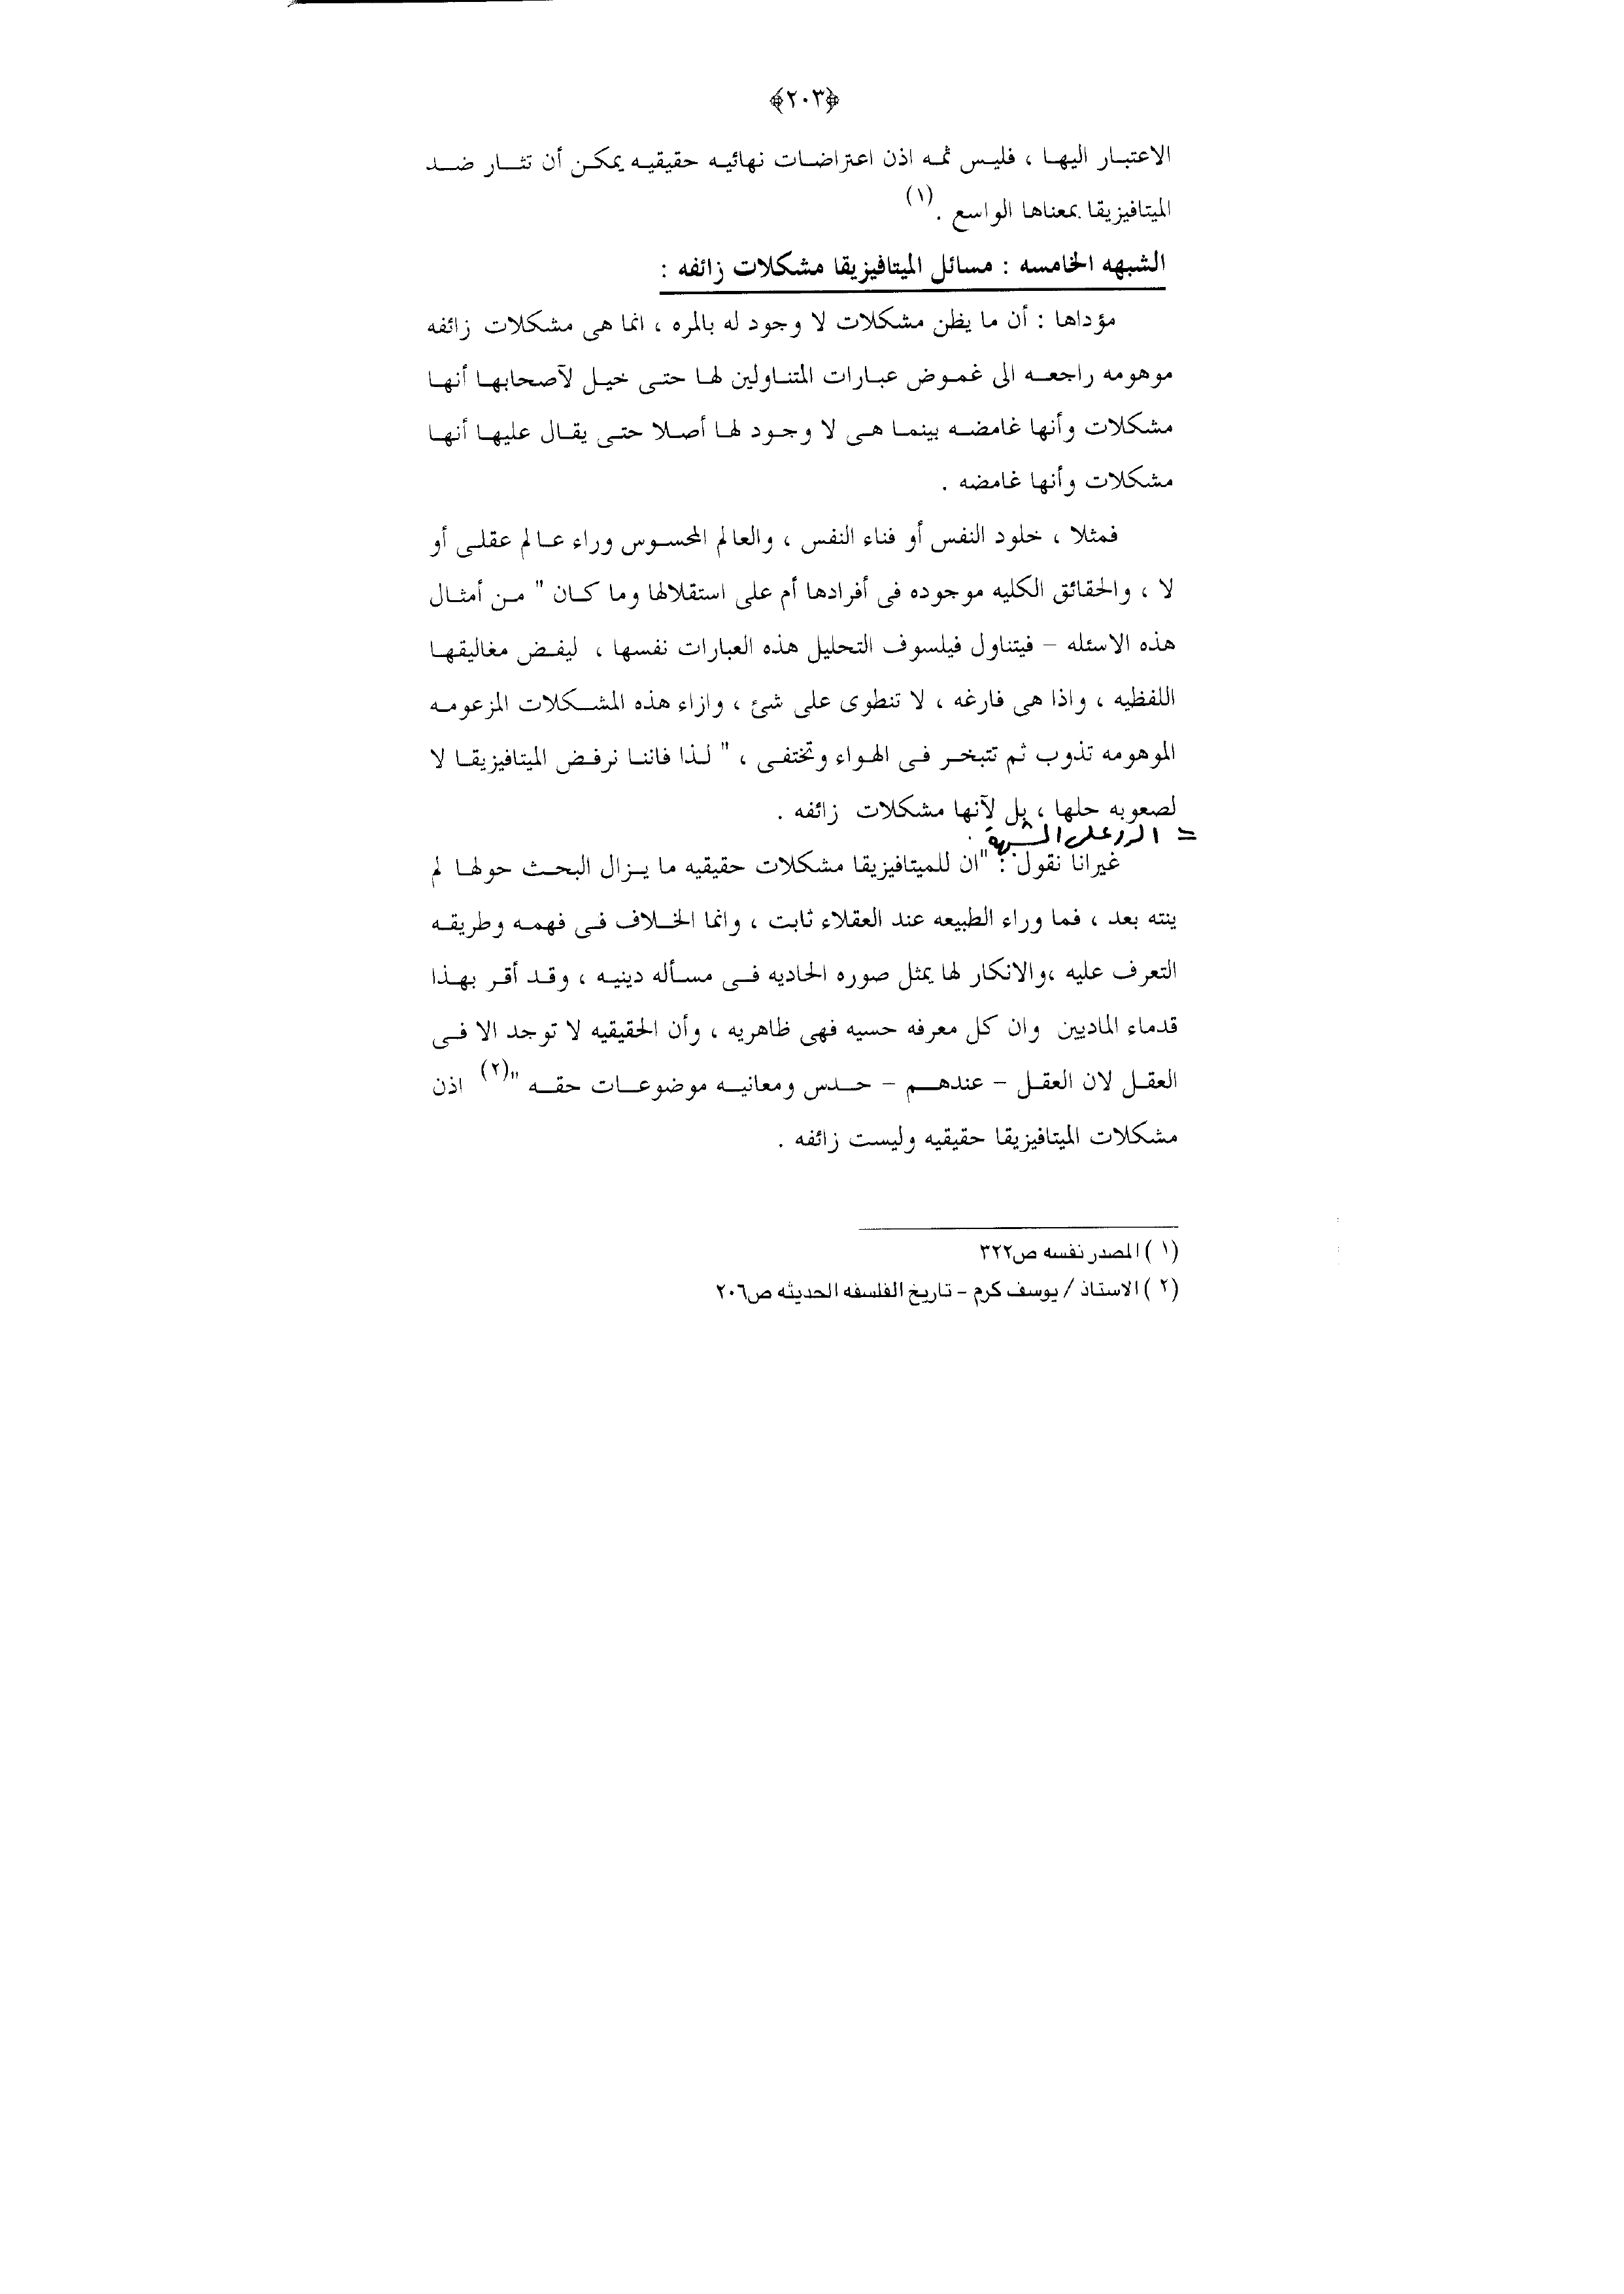 ﴿٢٠٣﴾
الاعتبار اليها ، فليس ثمه اذن اعتراضات نهائيه حقيقيه يمكن أن تثار ضد
الميتافيزيقا بمعناها الواسع .(١)
الشبهه الخامسه : مسائل الميتافيزيقا مشكلات زائفه :
مؤداها : أن ما يظن مشكلات لا وجود له بالمره ، انما هى مشكلات زائفه
موهومه راجعه الى غموض عبارات المتناولين لها حتى خيل لآصحابها أنها
مشكلات وأنها غامضه بينما هى لا وجود لها أصلا حتى يقال عليها أنها
مشكلات وأنها غامضه .
فمثلا ، خلود النفس أو فناء النفس ، والعالم المحسوس وراء عالم عقلى أو
لا ، والحقائق الكليه موجوده فى أفرادها أم على استقلالها وما كان " من أمثال
هذه الاسئله – فيتناول فيلسوف التحليل هذه العبارات نفسها ، ليفض مغاليقها
اللفظيه ، واذا هى فارغه ، لا تنطوى على شئ ، وازاء هذه المشكلات المزعومه
الموهومه تذوب ثم تتبخر فى الهواء وتختفى ، " لذا فاننا نرفض الميتافيزيقا لا
لصعوبه حلها ، بل لآنها مشكلات زائفه .
= الرد على الشبهة
غيرانا نقول : "ان للميتافيزيقا مشكلات حقيقيه ما يزال البحث حولها لم
ينته بعد ، فما وراء الطبيعه عند العقلاء ثابت ، وانما الخلاف فى فهمه وطريقه
التعرف عليه ،والانكار لها يمثل صوره الحاديه فى مسأله دينيه ، وقد أقر بهذا
قدماء الماديين وان كل معرفه حسيه فهى ظاهريه ، وأن الحقيقيه لا توجد الا فى
العقل لان العقل – عندهم – حدس ومعانيه موضوعات حقه "(٢) اذن
مشكلات الميتافيزيقا حقيقيه وليست زائفه .
(١ )المصدر نفسه ص٣٢٢
(٢ )الاستاذ / يوسف كرم – تاريخ الفلسفه الحديثه ص٢٠٦